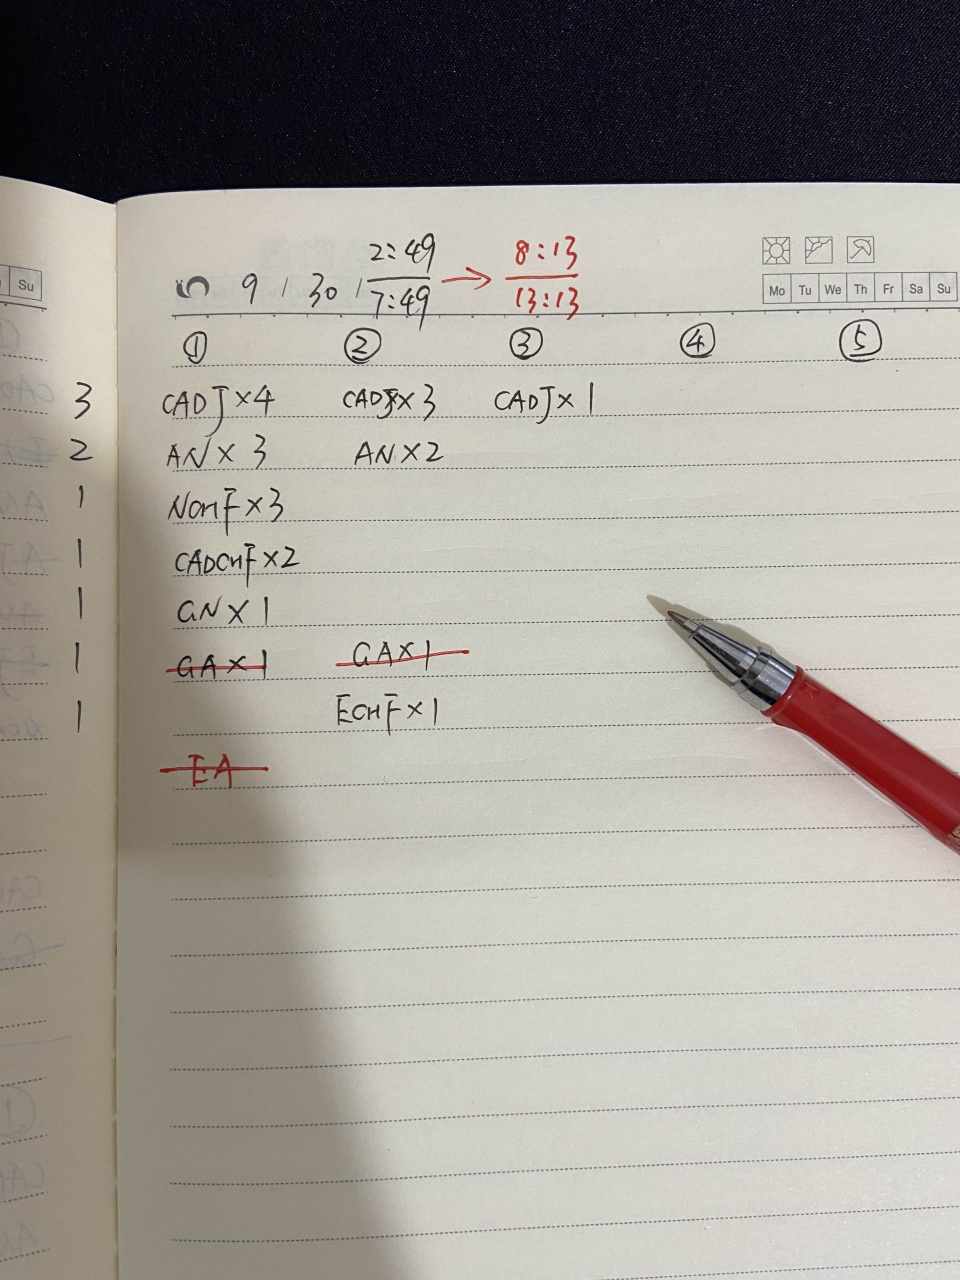 Su
Mo Tu We Th Fr Sa Su
9 / 30 / 2:49 → 8:13
7:49 13:13
① ② ③ ④ ⑤
3 CADJ×4 CADJ×3 CADJ×1
2 AN×3 AN×2
1 NCHF×3
1 CADCHF×2
1 GN×1
1 GA×1 GA×1
1 ECHF×1
EA